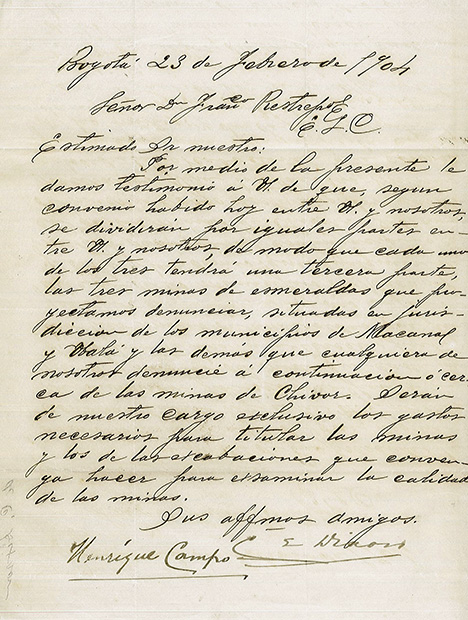 Bogotá 23 de Febrero de 1904
Señor Dn Franco Restrepo E
E. L. C.
Estimado Sr nuestro:
Por medio de la presente le
damos testimonio á U de que, segun
convenio habido hoy entre U. y nosotros,
se dividiran por iguales partes en-
tre U. y nosotros, de modo que cada uno
de los tres tendrá una tercera parte,
las tres minas de esmeraldas que pro-
yectamos denunciar, situadas en juris-
diccion de los municipios de Macanal
y Ubalá y las demás que cualquiera de
nosotros denuncie á continuacion ó cer-
ca de las minas de Chivor. Seran
de nuestro cargo exclusivo los gastos
necesarios para titular las minas
y los de las escabaciones que conven-
ga hacer para examinar la calidad
de las minas.
Sus affmos amigos.
Henrique Campo